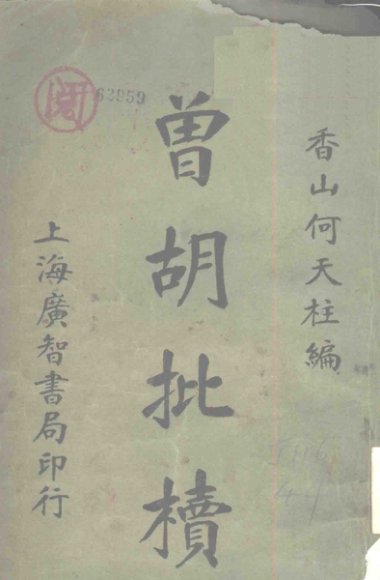 香山何天柱編
曾胡批樻
上海廣智書局印行
閱
62959